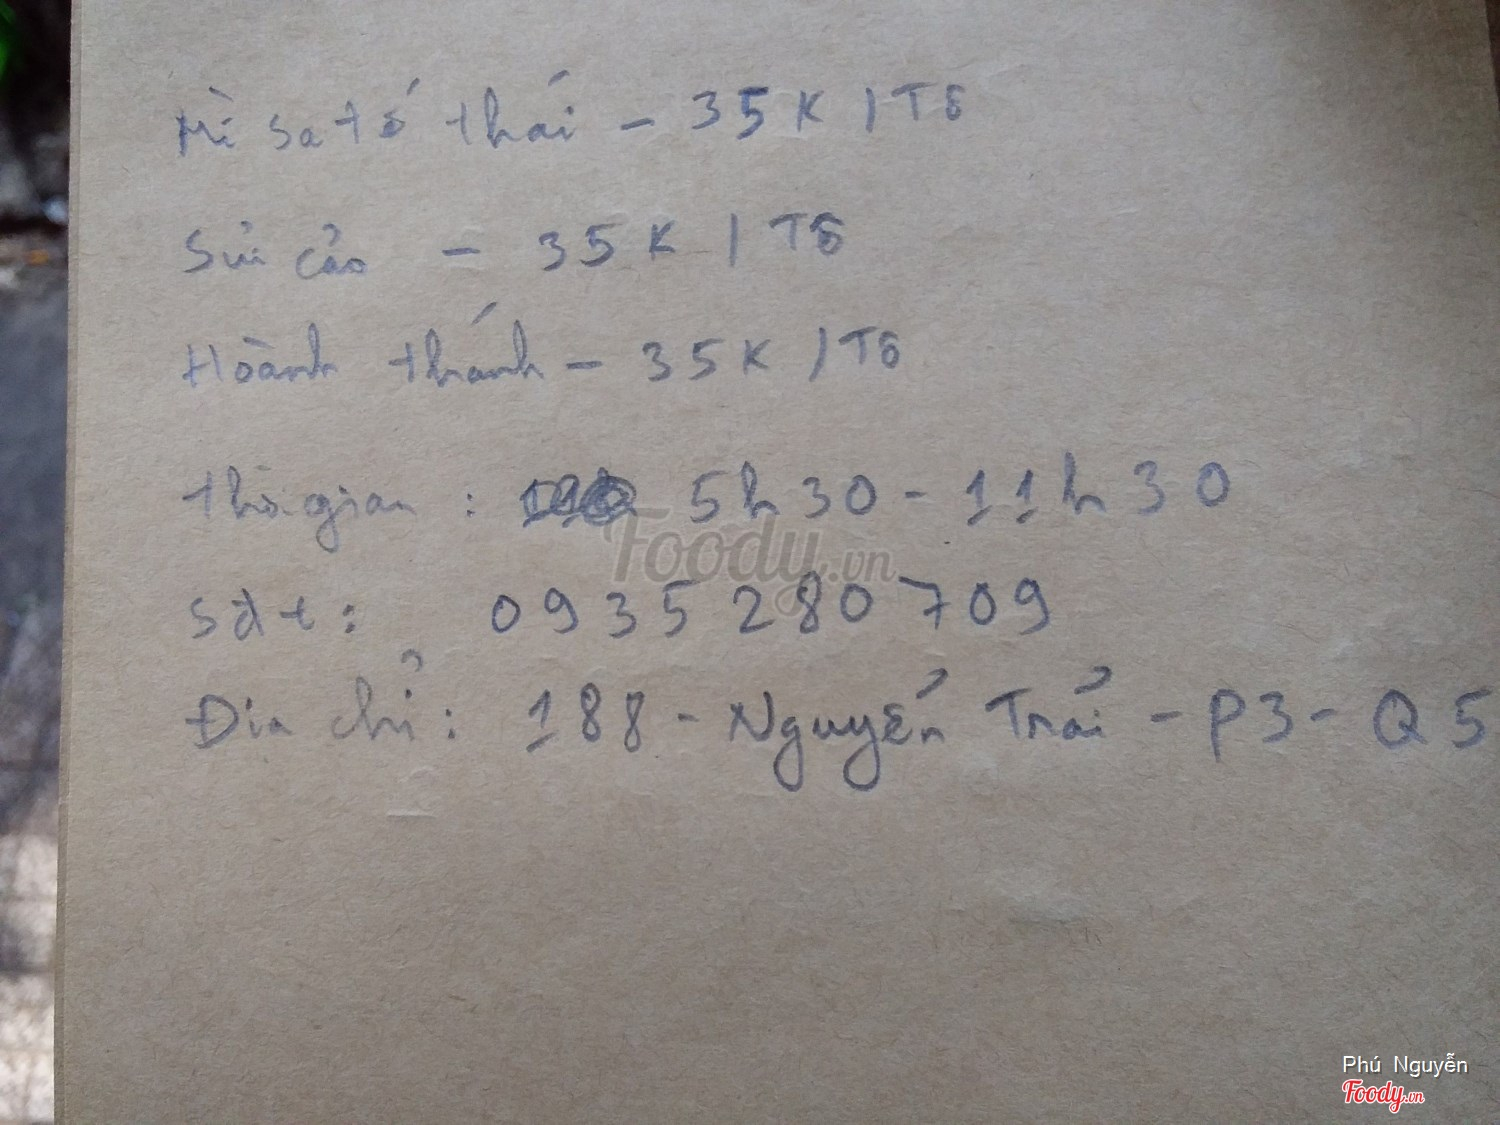 Mì sa tế thái - 35K / Tô
Sủi cảo - 35K / Tô
Hoành thánh - 35K / Tô
Thời gian : 5h30 - 11h30
Sđt : 0935280709
Địa chỉ : 188 - Nguyến Trải - P3 - Q5
Foody.vn
Phú Nguyễn
Foody.vn